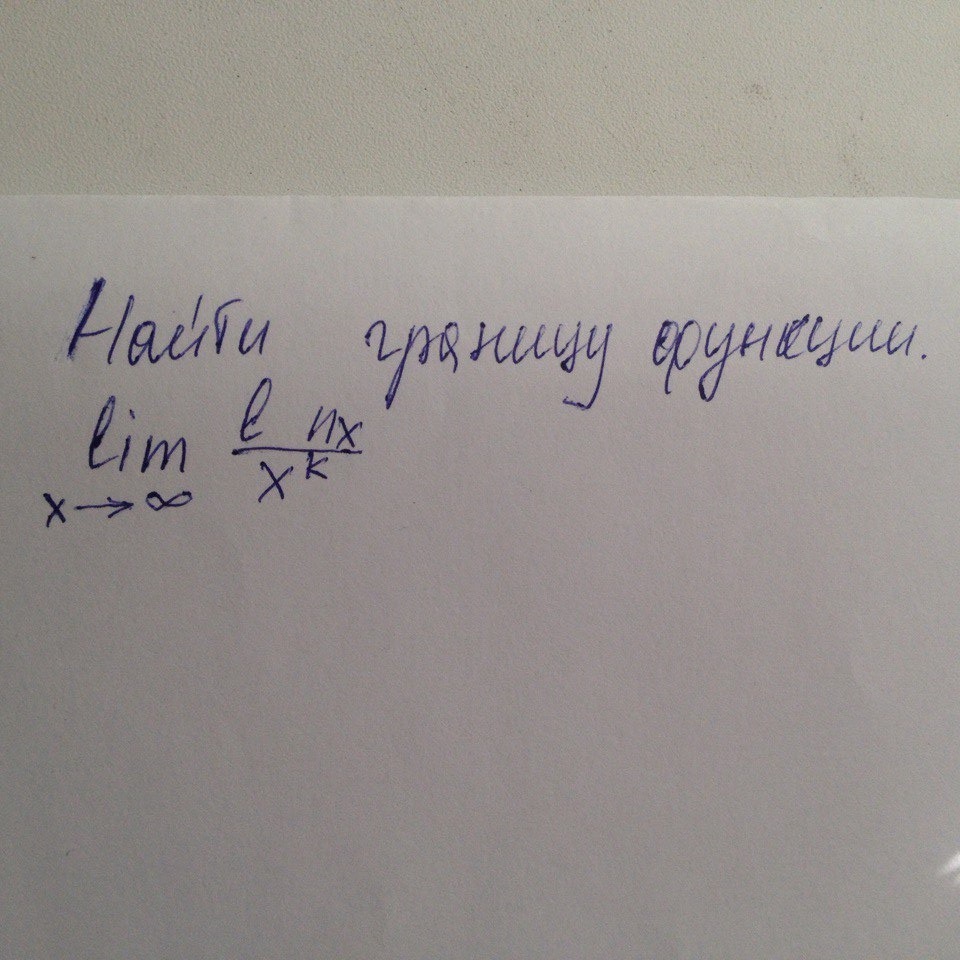 Найти границу функции.
lim ℓ nx
x→∞ x^k